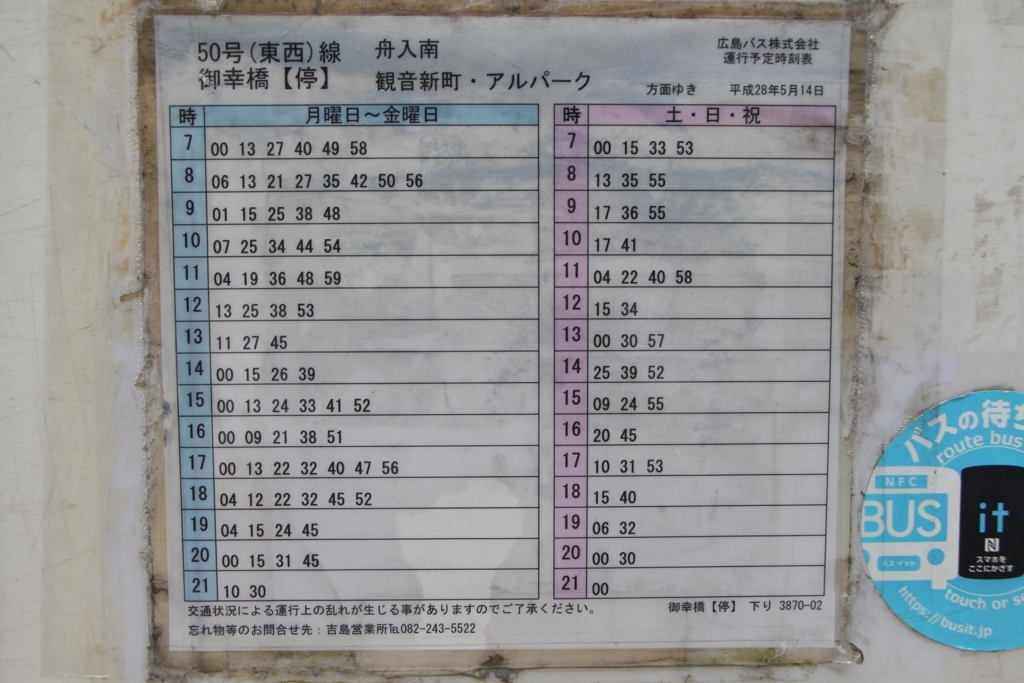 50号(東西)線 舟入南
御幸橋【停】 観音新町・アルパーク 方面ゆき 平成28年5月14日
広島バス株式会社
運行予定時刻表
時 月曜日～金曜日
7 00 13 27 40 49 58
8 06 13 21 27 35 42 50 56
9 01 15 25 38 48
10 07 25 34 44 54
11 04 19 36 48 59
12 13 25 38 53
13 11 27 45
14 00 15 26 39
15 00 13 24 33 41 52
16 00 09 21 38 51
17 00 13 22 32 40 47 56
18 04 12 22 32 45 52
19 04 15 24 45
20 00 15 31 45
21 10 30
時 土・日・祝
7 00 15 33 53
8 13 35 55
9 17 36 55
10 17 41
11 04 22 40 58
12 15 34
13 00 30 57
14 25 39 52
15 09 24 55
16 20 45
17 10 31 53
18 15 40
19 06 32
20 00 30
21 00
交通状況による運行上の乱れが生じる事がありますのでご了承ください。 御幸橋【停】 下り 3870-02
忘れ物等のお問合せ先：吉島営業所℡082-243-5522
バスの待ち
route bus
NFC
BUS it
バスイット
スマホを
ここにかざす
touch or
https://busit.jp